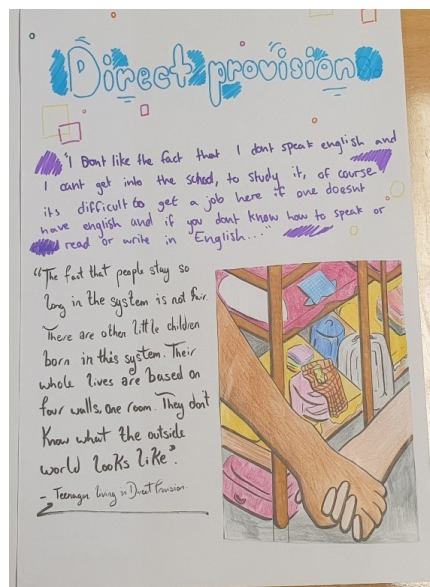 Direct provision
"I Dont like the fact that I dont speak english and
I cant get into the school, to study it, of course
its difficult to get a job here if one doesnt
have english and if you dont know how to speak or
read or write in "English..."
"The fact that people stay so
long in the system is not fair.
There are other little children
born in this system. Their
whole lives are based on
four walls, one room. They don't
Know what the outside
world looks like".
- Teenager living in Direct Provision.